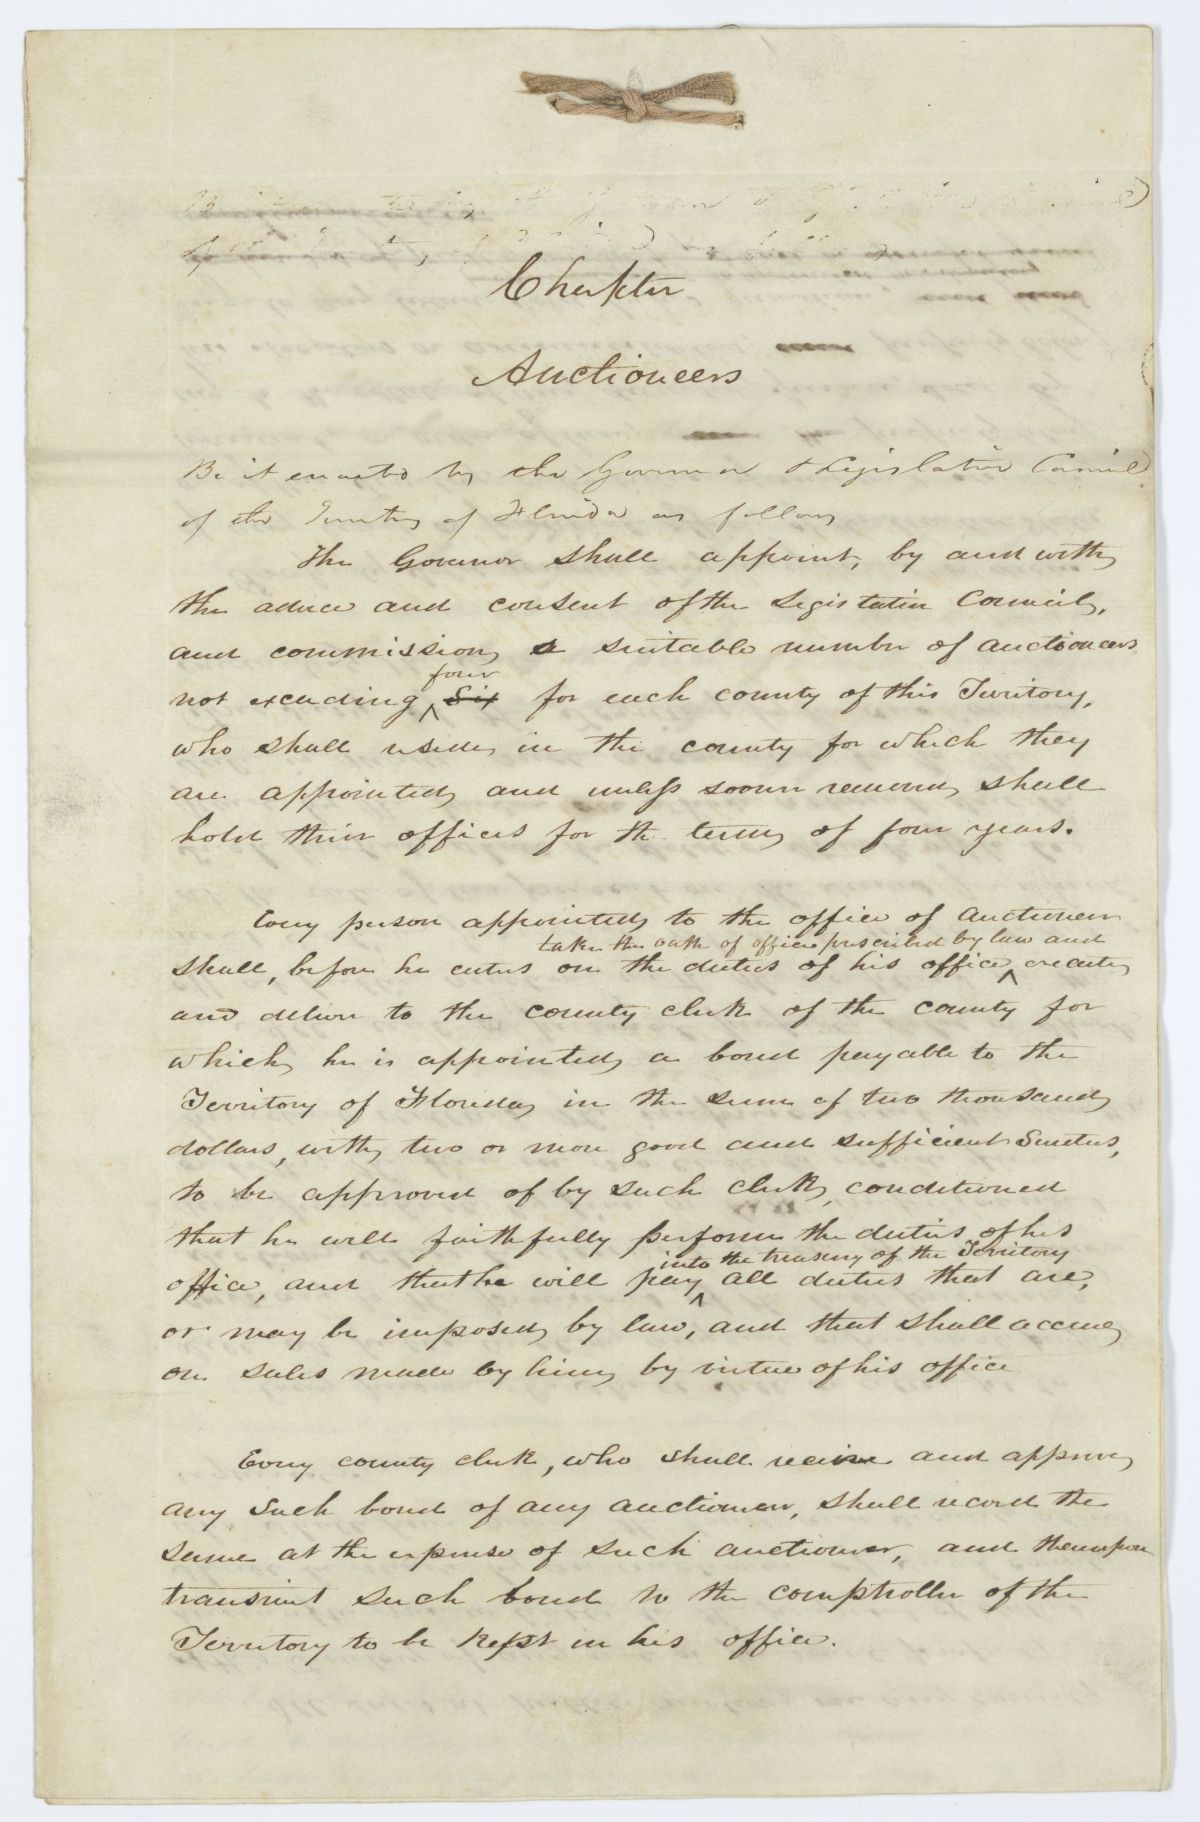 Chapter
Auctioneers
Be it enacted by the Governor & Legislative Council
of the Territory of Florida as follows
The Governor shall appoint, by and with
the advice and consent of the Legislative Council,
and commission a suitable number of auctioneers
four
not exceeding ^ Six for each county of this Territory,
who shall reside in the county for which they
are appointed, and unless sooner removed, shall
hold their offices for the term of four years.
Every person appointed to the office of Auctioneer
take the oath of office prescribed by law and
shall, before he enters on the duties of his office ^ execute
and deliver to the county clerk of the county for
which he is appointed a bond payable to the
Territory of Florida in the sum of two thousand
dollars, with two or more good and sufficient Sureties,
to be approved of by such clerk, conditioned
that he will faithfully perform the duties of his
into the treasury of the Territory
office, and that he will pay ^ all duties that are,
or may be imposed by law, and that shall accrue
on sales made by him by virtue of his office
Every county clerk, who shall receive and approve
any such bond of any auctioneer, shall record the
same at the expense of such auctioneer, and thereupon
transmit such bond to the comptroller of the
Territory to be kept in his office.